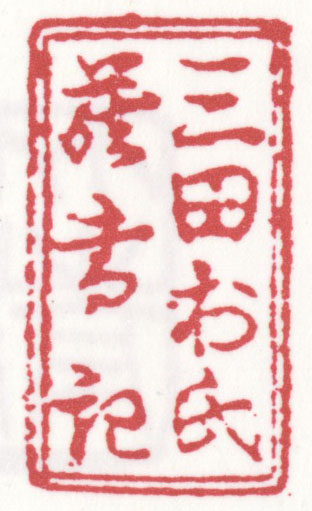 三田村氏
蔵書記